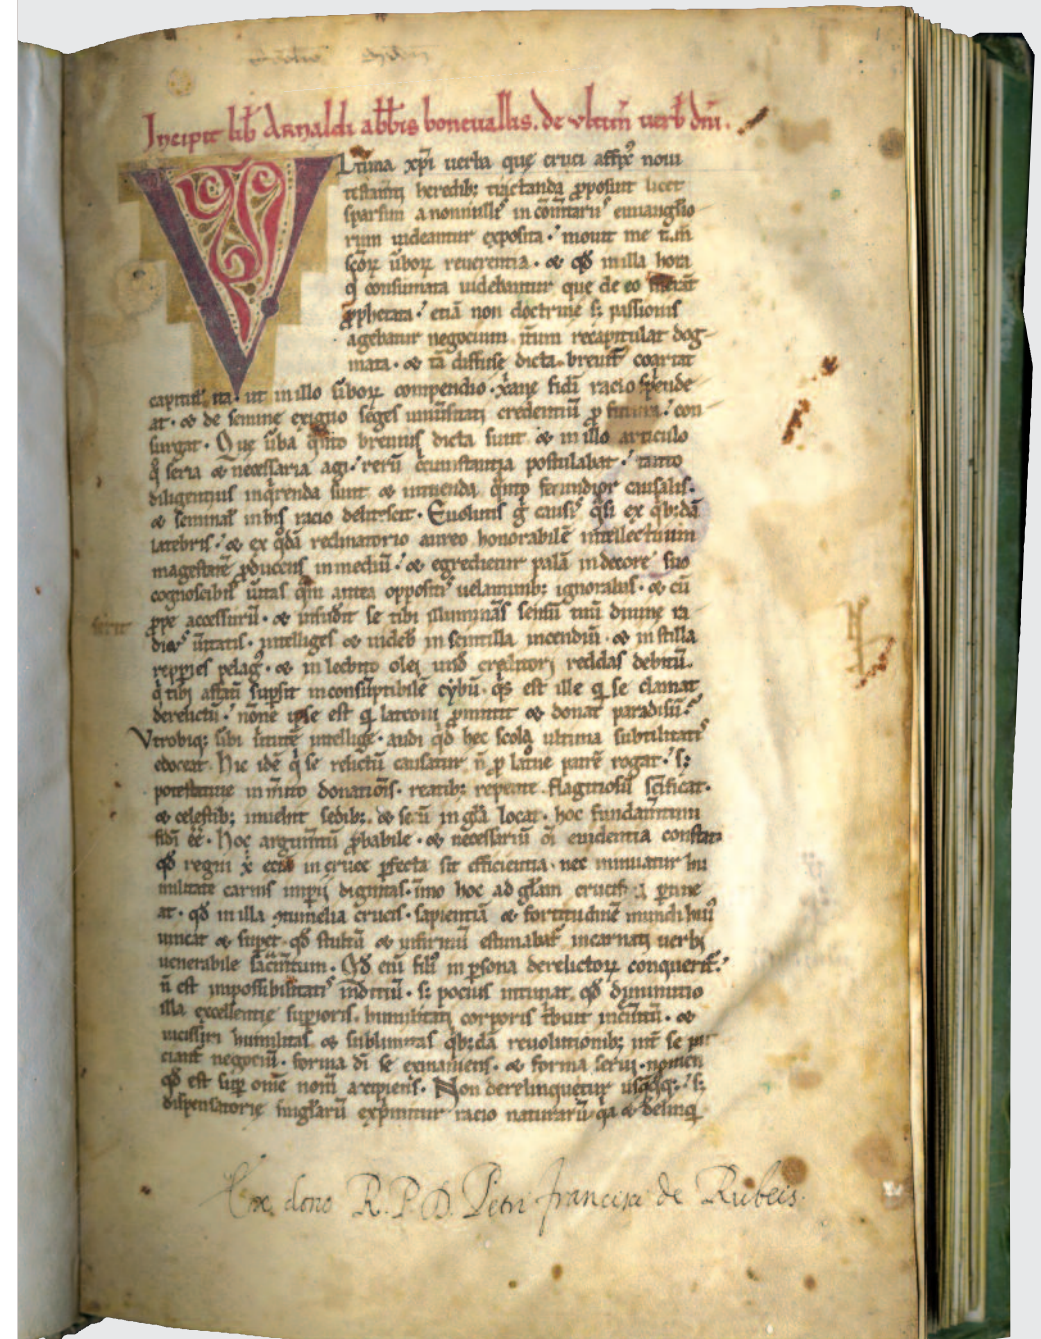 Incipit lib̄ Arnaldi abb̄is boneuallis. de vltim̄ uerb̄ dn̄i.
VLtima xp̄i uerba que cruci affix̄ noui
testam̄ti heredib; tractanda p̄posuit licet
sparsim a nonnullis in com̄tariis euuanglio
rum uideantur exposita. mouit me n̄.m̄
sc̄oꝝ ūboꝝ reuerentia. & qd̄ in illa hora
q̄ consumata uidebantur que de eo
p̄phetata. etiā non doctrine s; passionis
agebatur negocium. it̄um recapitulat dog-
mata. & tā diffuse dicta breuit̄ coartat
ita ut in illo ūboꝝ compendio. x̄ane fidei racio splende
at. & de semine exiguo seges uniūsitatis credentiū p̄ futura con
surgat. Que ūba q̄nto breuius dicta sunt & in illo articulo
q̄ seria & necessaria agi rerū c̄cumstantia postulabat. tanto
diligentius inq̄renda sunt & intuenda q̄nto fecundior causalis.
& seminal' in his racio delitescit. Euolutis g̊ causis q̄si ex q̄b;dā
latebris. & ex q̄dā reclinatorio aureo honorabilē intellectuum
magestatē p̄ducens in mediū. & egredietur palā in decore suo
cognoscibil' ūitas q̄m antea oppositis uelaminib; ignorabas. & cū
p̄pe accesserit. & infudit se tibi illuminās sensū tuū diuine ra
dius ūitatis. intelliges & uideb̄ in scintilla incendiū. & in stilla
repperies pelaḡ. & in lecbito olei unde creditori reddas debitū.
q̄ tibi affatī sup̄sit inconsūptibilē cybū. q̄s est ille q̄ se clamat
derelictū. nōne ipse est q̄ latroni p̄mittit & donat paradisū.
Vtrobiq; sibi intellige. audi q̄d hec scola ultima subtilitatis
edoceat. Hic idē q̄ se relictū causatur n̄ p̄ lat̄ne patrē rogat. s;
potestatiue in donatiōis. reatib; Flagitiosū sc̄ificat.
& celestib; inuehit sedib;. & secū in gl̄a locat. hoc fundamentum
fidei ēē. Hoc argumtū p̄babile. & necessariū oī euidentia constat
qd̄ regni x̄ in cruce p̄fecta sit efficientia. nec minuatur hu
militate carnis imp̄ii dignitas. imo hoc ad gl̄am crucis p̄tine
at. qd̄ in illa crucis. sapientiā & fortitudinē mundi hui'
uincat & sup̄et. qd̄ stultū & infirmū estimabat̄ incarnati uerbi
uenerabile sac̄mtum. Qd̄ enī filī in p̄sona derelictoꝝ conquerit̄.
n̄ est impossibilitatis inditiū. s; pocius intimat qd̄ diminutio
illa excellentie sup̄ioris. humilitati corporis t̄buit &
uicissim humilitas & sublimitas q̄b;dā reuolutionib; int̄ se par
ciant̄ negociū. forma dī se exinaniens. & forma serui. nomen
qd̄ est sup̄ omne nom̄ accipiens. Non derelinquetur usq̄q̄q;. s;
dispensatorie singl'arū exp̄mitur racio naturarū. q̄a & delinq̄
Ex dono R. P. D. Petri francisci de Rubeis.